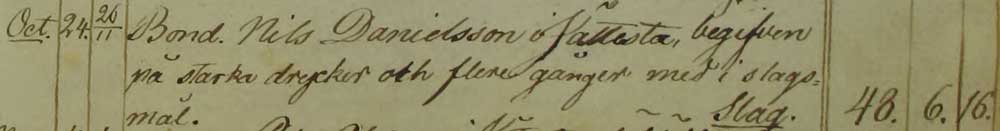 Oct. 24. 26/11 Bond. Nils Danielsson i Sättista, begifven
på starka drycker och flere gånger med i slags=
mål. Slag. 48. 6. 16.